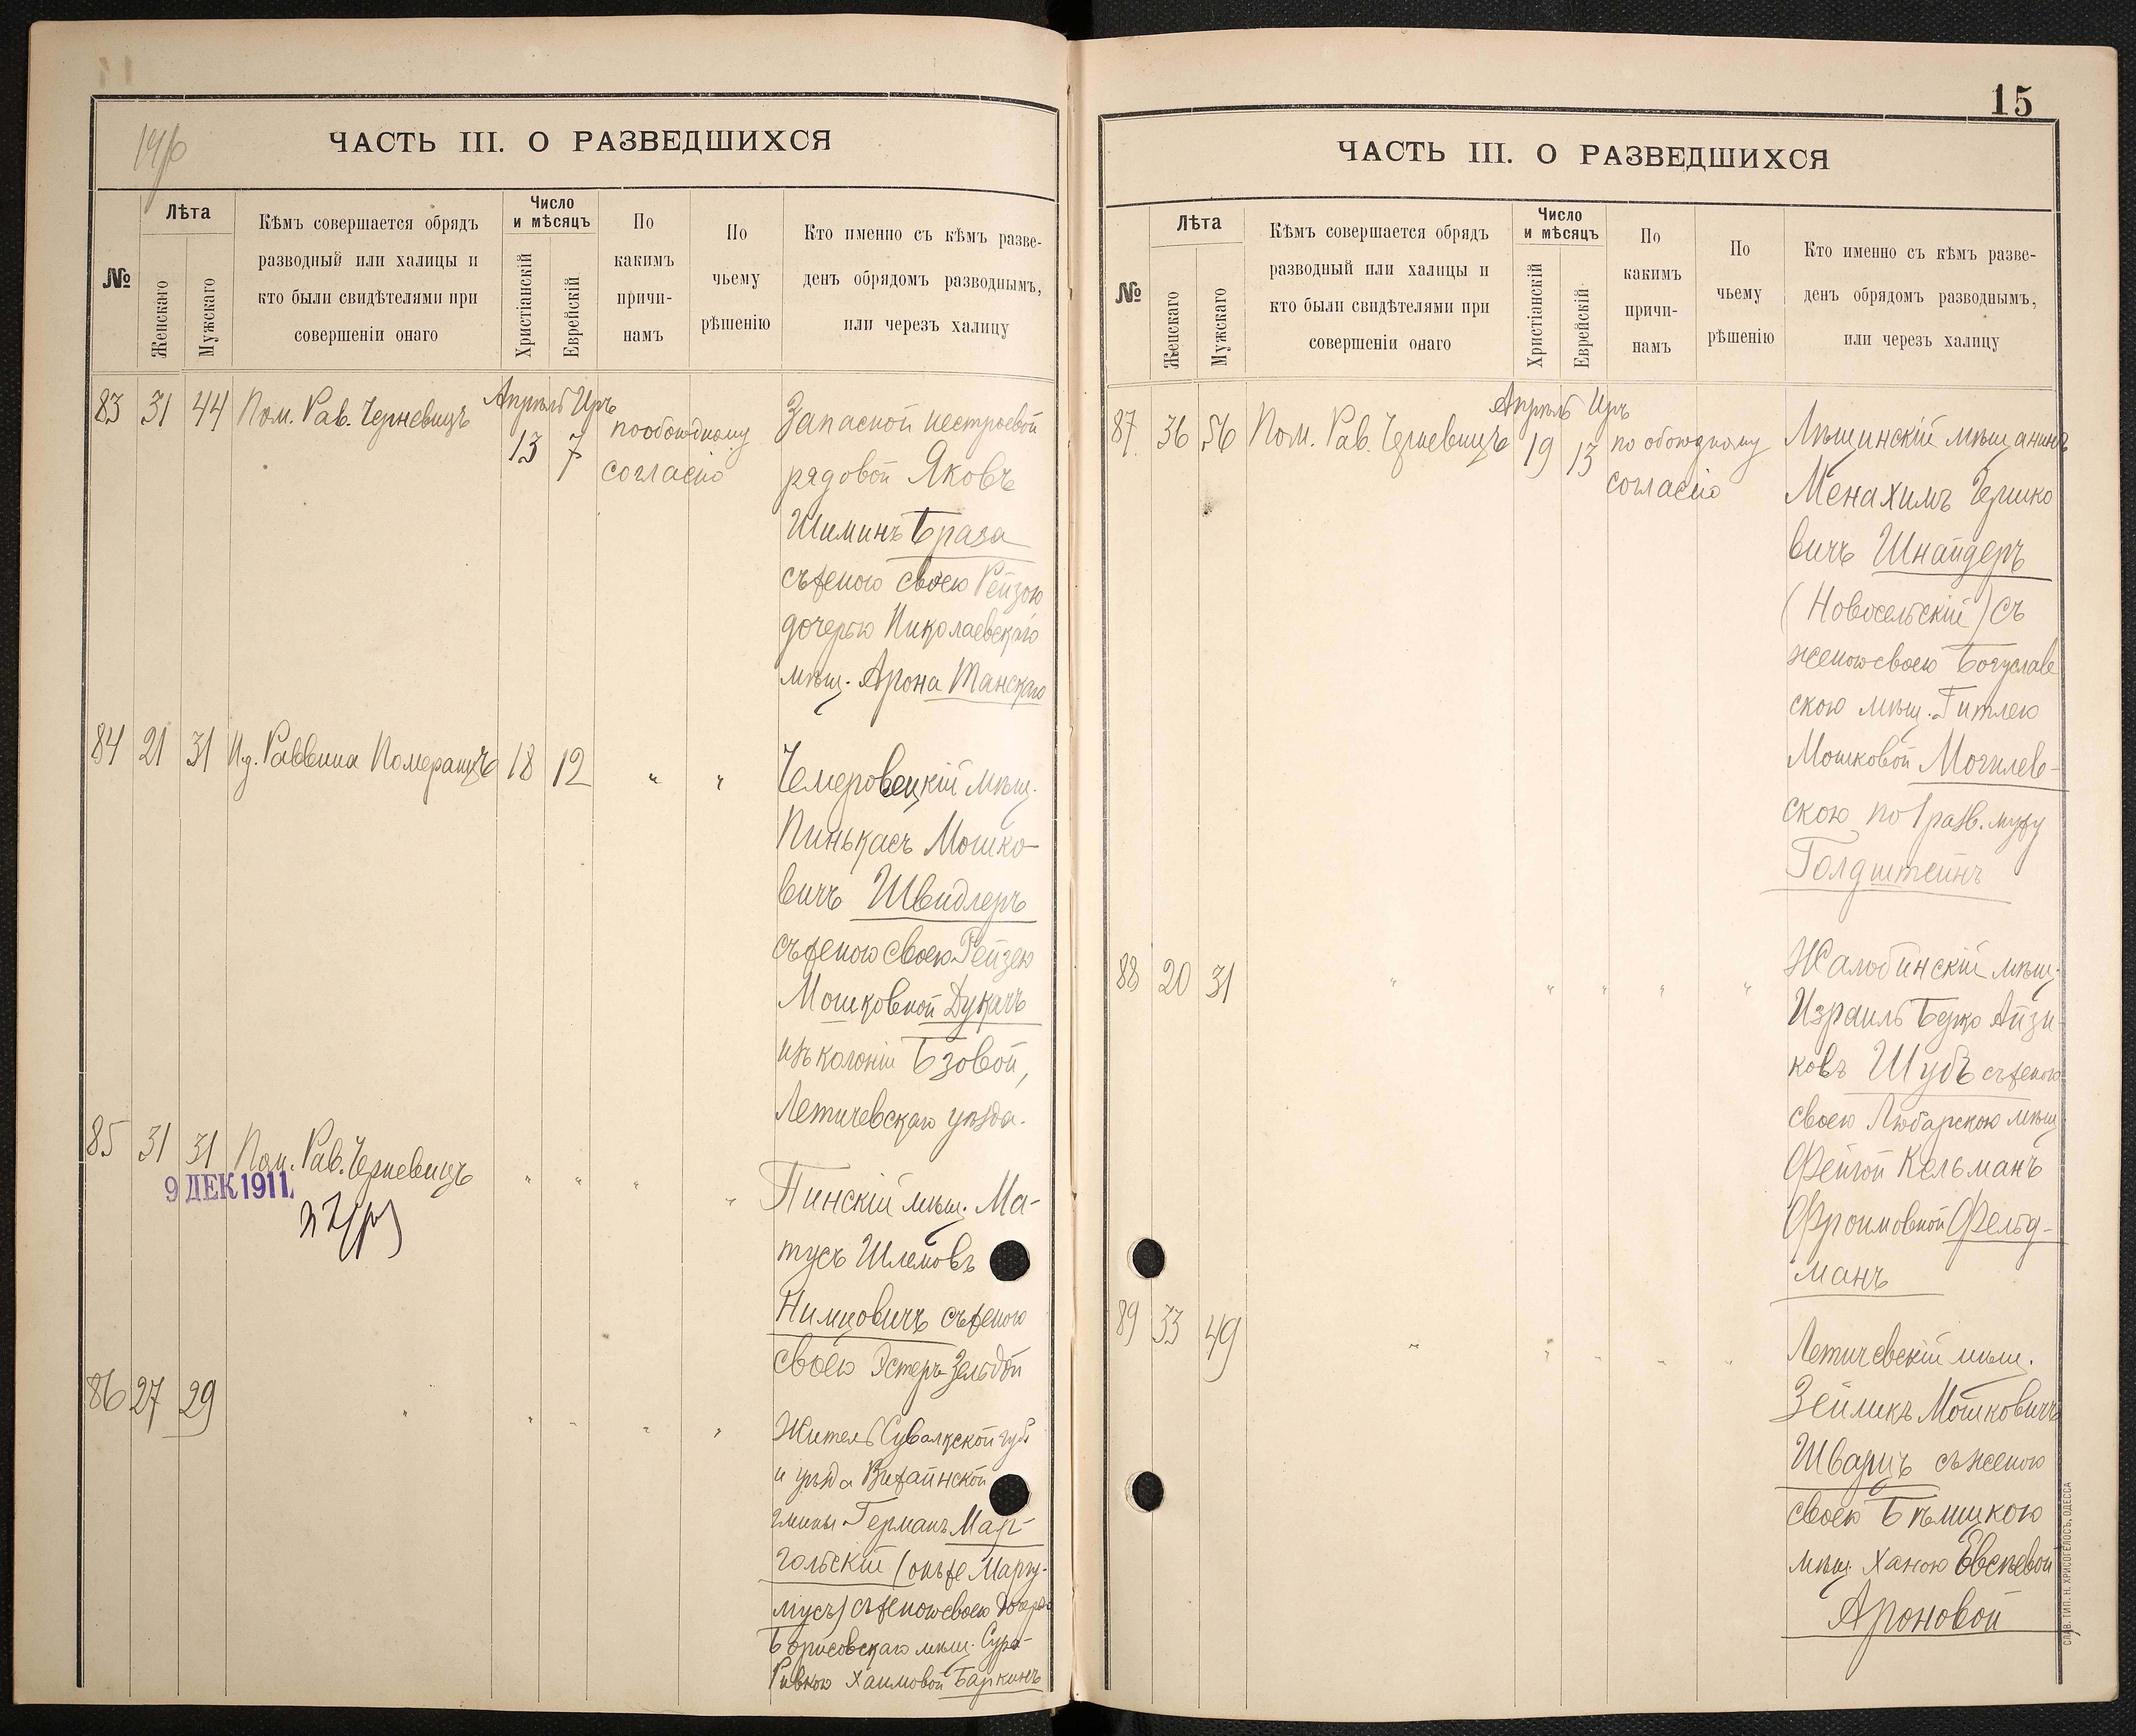 ЧАСТЬ III. О РАЗВЕДШИХСЯ
№
Лѣта
Женскаго
Мужскаго
Кѣмъ совершается обрядъ
разводный или халицы и
кто были свидѣтелями при
совершеніи онаго
Число
и мѣсяцъ
Христіанскій
Еврейскій
По
какимъ
причи-
намъ
По
чьему
рѣшенію
Кто именно съ кѣмъ разве-
денъ обрядомъ разводнымъ,
или через халицу
83 31 44 Пом. Рав. Черневицъ
Апрѣль Иръ
13 7
по обоюдному
согласію
Запасной нестроевой
рядовой Яковъ
Шиминъ Браза
съ женою своею Рейзою
дочерью Николаевскаго
мѣщ. Арона Танскаго
84 21 31 И.д. Раввина Померанцъ 18 12 " "
Чемеровецкій мѣщ.
Пинькасъ Мошко-
вичъ Швидлеръ
съ женою своею Рейзею
Мошковной Дукачъ
изъ колоніи Бзовой,
Летичевскаго уѣзда.
85 31 31 Пом. Рав. Черневицъ " " " "
9 ДЕК 1911
Пинскій мѣщ. Ма-
тусъ Шлемовъ
Нимцовичъ съ женою
своею Эстеръ-Зельдой
86 27 29 " " " " "
Житель Сувалкской губ.
и уѣзда Вижайнской
гмины Германъ Мар-
гольскій (онъ же Маргу-
лисъ) съ женою своею дочерью
Борисовскаго мѣщ. Сура-
Ривкою Хаимовой Баркинъ
15
ЧАСТЬ III. О РАЗВЕДШИХСЯ
№
Лѣта
Женскаго
Мужскаго
Кѣмъ совершается обрядъ
разводный или халицы и
кто были свидѣтелями при
совершеніи онаго
Число
и мѣсяцъ
Христіанскій
Еврейскій
По
какимъ
причи-
намъ
По
чьему
рѣшенію
Кто именно съ кѣмъ разве-
денъ обрядомъ разводнымъ,
или черезъ халицу
87 36 56 Пом. Рав. Черневицъ
Апрѣль Иръ
19 13
по обоюдному
согласію
мѣщанинъ
Менахимъ Гершко
вичъ Шнайдеръ
(Новосельскій) съ
женою своею Богуслав
скою мѣщ. Гитлею
Мошковой Могилев-
скою по I разв. мужу
Голдштейнъ
88 20 31 " " " " "
Жалобинскій мѣщ.
Израиль Берко Айзи-
ковъ Шубъ съ женою
своею Любарскою мѣщ.
Фейгой Кельманъ
Фроимовной Фельд-
манъ
89 33 49 " " " " "
Летичевскій мѣщ.
Зейликъ Мошковичъ
Шварцъ съ женою
своею Бѣлицкою
мѣщ. Ханою Евсѣевой
Ароновой
СЛАВ. ТИП. Н. ХРИСОГЕЛОСЪ, ОДЕССА